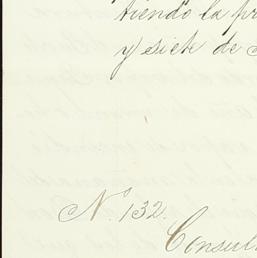 tiendo la pr
y siete de
Nº 132.
Consul